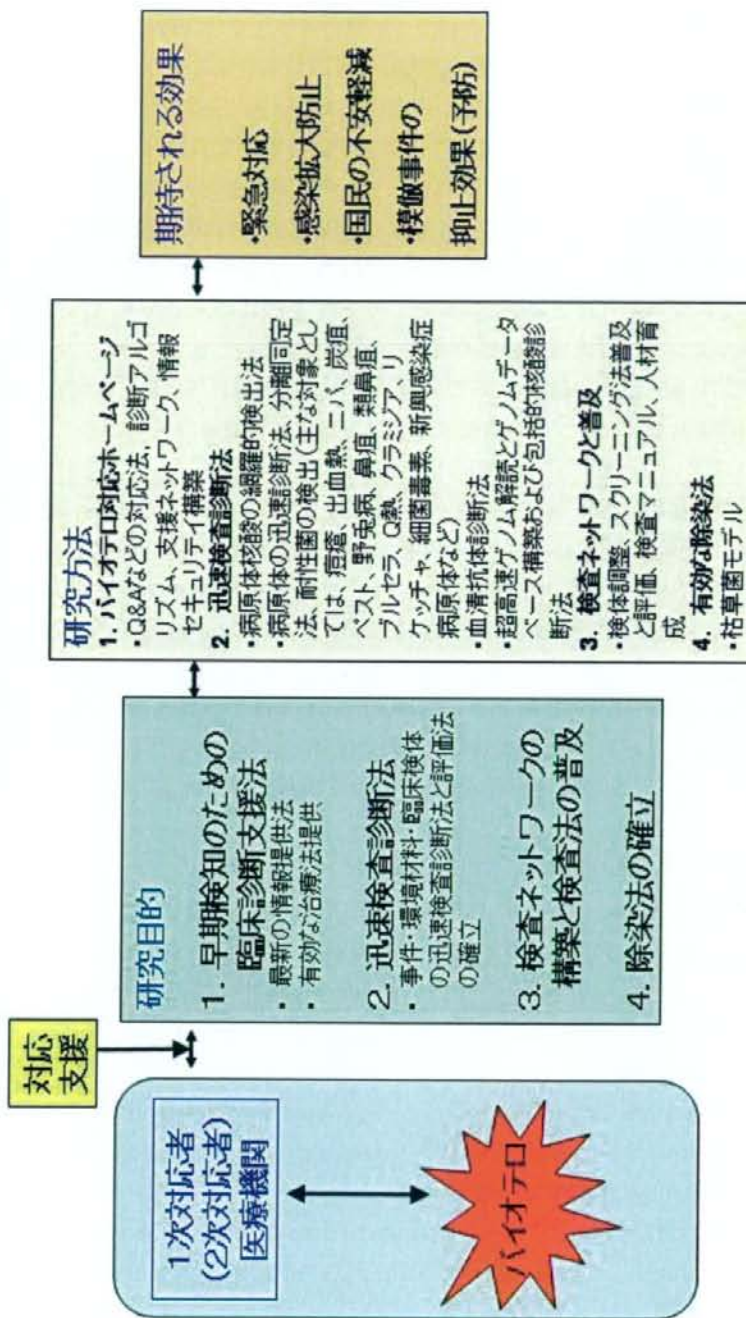 対応
支援
1次対応者
(2次対応者)
医療機関
バイオテロ
研究目的
1. 早期検知のための
臨床診断支援法
• 最新の情報提供法
• 有効な治療法提供
2. 迅速検査診断法
• 事件・環境材料・臨床検体
の迅速検査診断法と評価法
の確立
3. 検査ネットワークの
構築と検査法の普及
4. 除染法の確立
研究方法
1. バイオテロ対応ホームページ
• Q&Aなどの対応法、診断アルゴ
リズム、支援ネットワーク、情報
セキュリティ構築
2. 迅速検査診断法
• 病原体核酸の網羅的検出法
• 病原体の迅速診断法、分離同定
法、耐性菌の検出(主な対象とし
ては、痘瘡、出血熱、ニパ、炭疽、
ペスト、野兎病、鼻疽、類鼻疽、
ブルセラ、Q熱、クラミジア、リ
ケッチャ、細菌毒素、新興感染症
病原体など)
• 血清抗体診断法
• 超高速ゲノム解読とゲノムデータ
ベース構築および包括的核酸診
断法
3. 検査ネットワークと普及
• 検体調整、スクリーニング法普及
と評価、検査マニュアル、人材育
成
4. 有効な除染法
• 枯草菌モデル
期待される効果
•緊急対応
•感染拡大防止
•国民の不安軽減
•模倣事件の
抑止効果(予防)